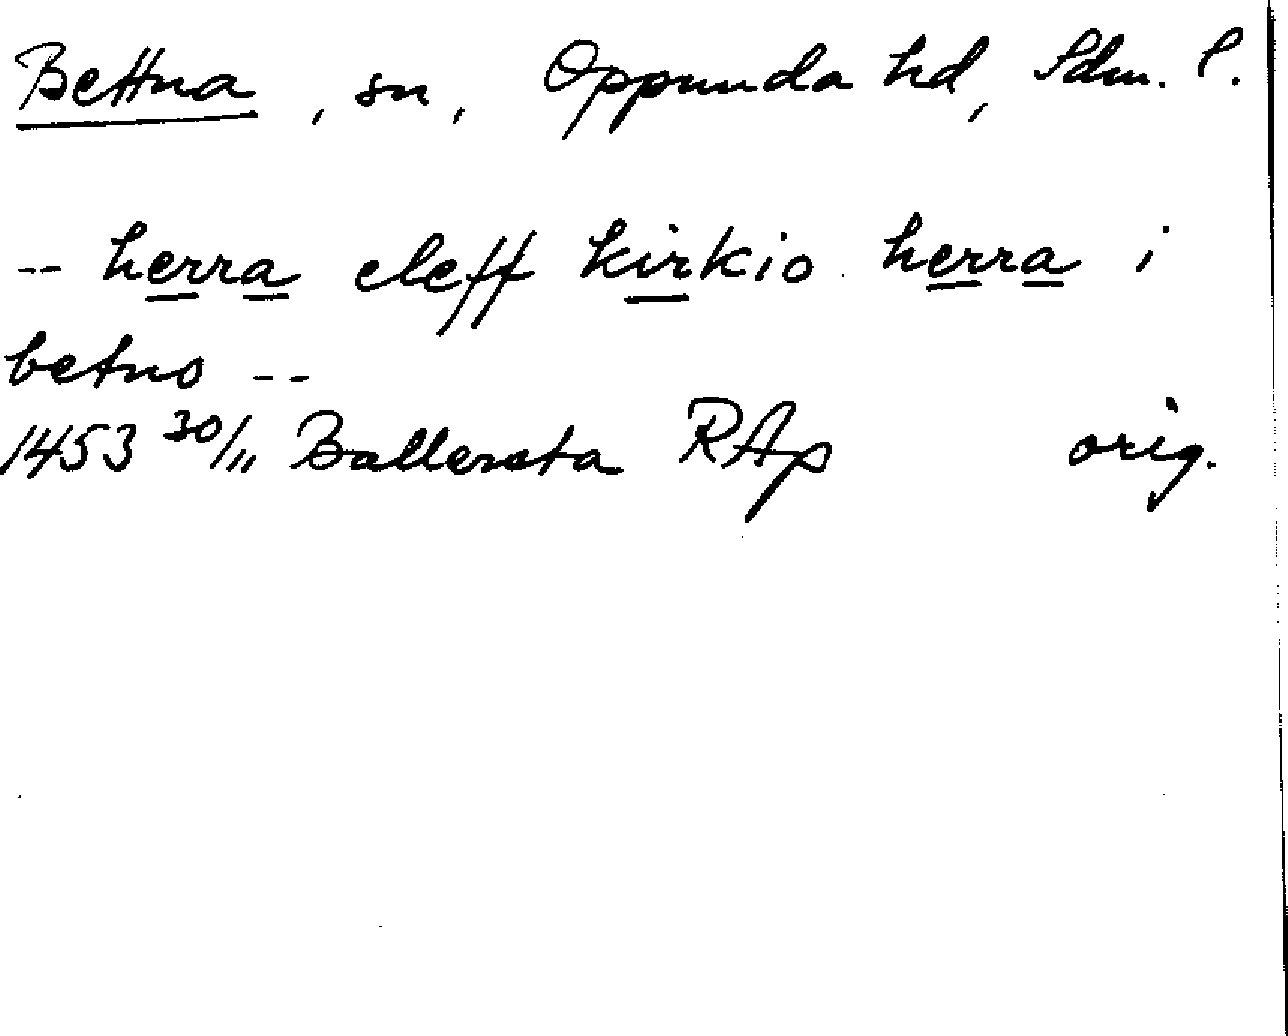 Bettna, sn, Oppunda hd, Sdm. l.
-- herra eleff kirkio herra i
betno --
1453 30/11 Ballersta RAp orig.